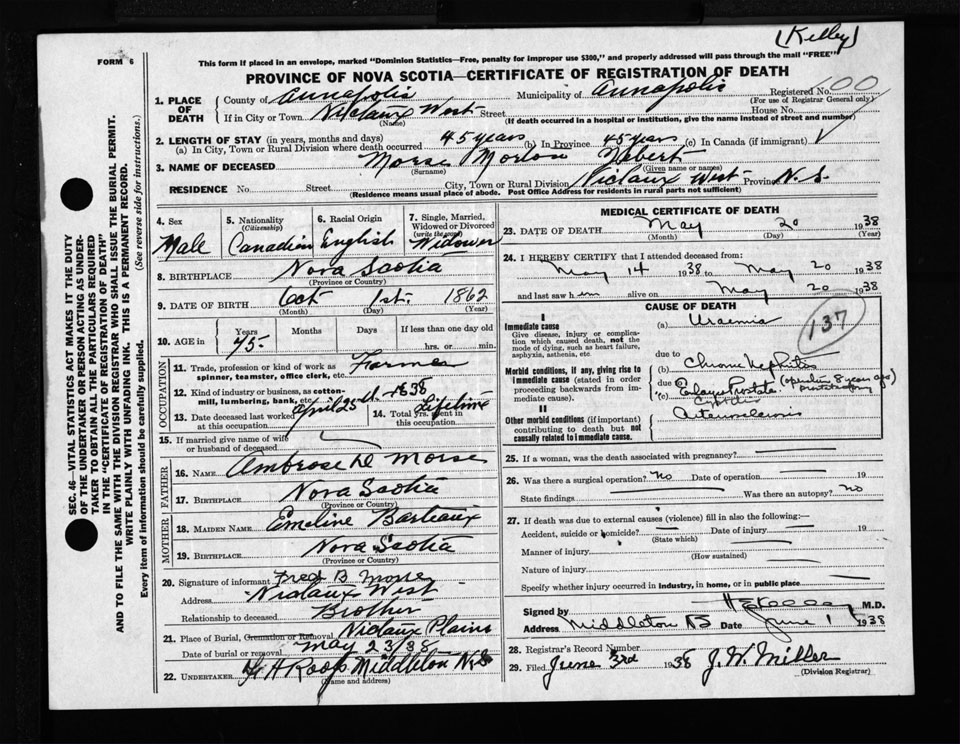 (Kelley)
FORM 6
This form if placed in an envelope, marked "Dominion Statistics—Free, penalty for improper use $300," and properly addressed will pass through the mail "FREE"
PROVINCE OF NOVA SCOTIA—CERTIFICATE OF REGISTRATION OF DEATH
1. PLACE OF DEATH
County of Annapolis Municipality of Annapolis Registered No.
(For use of Registrar General only)
If in City or Town Nictaux West Street House No.
(Name) (If death occurred in a hospital or institution, give the name instead of street and number)
2. LENGTH OF STAY (in years, months and days)
(a) In City, Town or Rural Division where death occurred 45 years (b) In Province 45 years (c) In Canada (if immigrant)
3. NAME OF DECEASED Morse Morton Hebert
(Surname) (Given name or names)
RESIDENCE No. Street City, Town or Rural Division Nictaux West Province N.S.
(Residence means usual place of abode. Post Office Address for residents in rural parts not sufficient)
SEC. 46—VITAL STATISTICS ACT MAKES IT THE DUTY
OF THE UNDERTAKER OR PERSON ACTING AS UNDER-
TAKER TO OBTAIN ALL THE PARTICULARS REQUIRED
IN THE "CERTIFICATE OF REGISTRATION OF DEATH"
AND TO FILE THE SAME WITH THE DIVISION REGISTRAR WHO SHALL ISSUE THE BURIAL PERMIT.
WRITE PLAINLY WITH UNFADING INK. THIS IS A PERMANENT RECORD.
Every item of information should be carefully supplied. (See reverse side for instructions.)
4. Sex
Male
5. Nationality
(Citizenship)
Canadian
6. Racial Origin
English
7. Single, Married,
Widowed or Divorced
(write the word)
Widower
8. BIRTHPLACE Nova Scotia
(Province or Country)
9. DATE OF BIRTH Oct 1st. 1862
(Month) (Day) (Year)
10. AGE in Years Months Days If less than one day old
75 hrs. or min.
OCCUPATION
11. Trade, profession or kind of work as Farmer
spinner, teamster, office clerk, etc.
12. Kind of industry or business, as cotton-
mill, lumbering, bank, etc.
13. Date deceased last worked
at this occupation April 25th 1938
14. Total years spent in
this occupation Lifetime
15. If married give name of wife
or husband of deceased
FATHER
16. NAME Ambrose D Morse
17. BIRTHPLACE Nova Scotia
(Province or Country)
MOTHER
18. MAIDEN NAME Emeline Barteaux
19. BIRTHPLACE Nova Scotia
(Province or Country)
20. Signature of informant Fred B Morse
Address Nictaux West
Relationship to deceased Brother
21. Place of Burial, Cremation or Removal Nictaux Plains
Date of burial or removal May 23/38
22. UNDERTAKER Roop Middleton N.S
(Name and address)
MEDICAL CERTIFICATE OF DEATH
23. DATE OF DEATH May 20 1938
(Month) (Day) (Year)
24. I HEREBY CERTIFY that I attended deceased from:
May 14 1938 to May 20 1938
and last saw him alive on May 20 1938
CAUSE OF DEATH
137
I
Immediate cause
Give disease, injury or complica-
tion which caused death, not the
mode of dying, such as heart failure,
asphyxia, asthenia, etc
(a) Uraemia
due to
Morbid conditions, if any, giving rise to
immediate cause (stated in order
proceeding backwards from im-
mediate cause).
(b) Chronic Nephritis
due to
(c) Prostate (operation 8 years ago)
II
Other morbid conditions (if important)
contributing to death but not
causally related to immediate cause.
Arteriosclerosis
25. If a woman, was the death associated with pregnancy?
26. Was there a surgical operation? No Date of operation 19
State findings Was there an autopsy? no
27. If death was due to external causes (violence) fill in also the following:—
Accident, suicide or homicide? Date of injury 19
(State which)
Manner of injury
(How sustained)
Nature of injury
Specify whether injury occurred in industry, in home, or in public place
Signed by M.D.
Address Middleton NS Date June 1 1938
28. Registrar's Record Number
29. Filed June 3rd 1938 J. W. Miller
(Division Registrar)